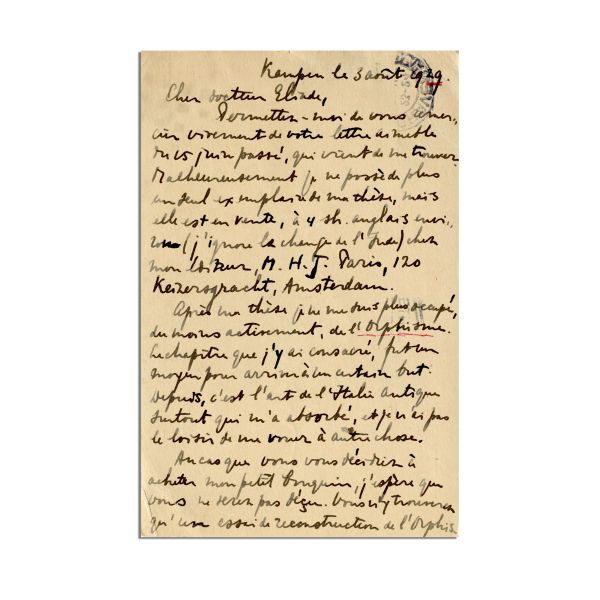 Kampen le 3 août 1929.
Cher docteur Eliade,
Permettez-moi de vous remer-
cier vivement de votre lettre aimable
du 15 juin passé, qui vient de me trouver.
Malheureusement je ne possède plus
un seul exemplaire de ma thèse, mais
elle est en vente, à 4 sh. anglais envi-
ron (j'ignore la change de l'Inde) chez
mon éditeur, M. H. J. Paris, 120
Keizersgracht, Amsterdam.
Après ma thèse je ne me suis plus occupé,
du moins activement, de l'Orphisme.
Le chapitre que j'y ai consacré, fut un
moyen pour arriver à un certain but.
Depuis, c'est l'art de l'Italie antique
surtout qui m'a absorbé, et je n'ai pas
le loisir de me vouer à autre chose.
Au cas que vous vous décidiez à
acheter mon petit bouquin, j'espère que
vous ne serez pas déçu. Vous n'y trouverez
qu'un essai de reconstruction de l'Orphis